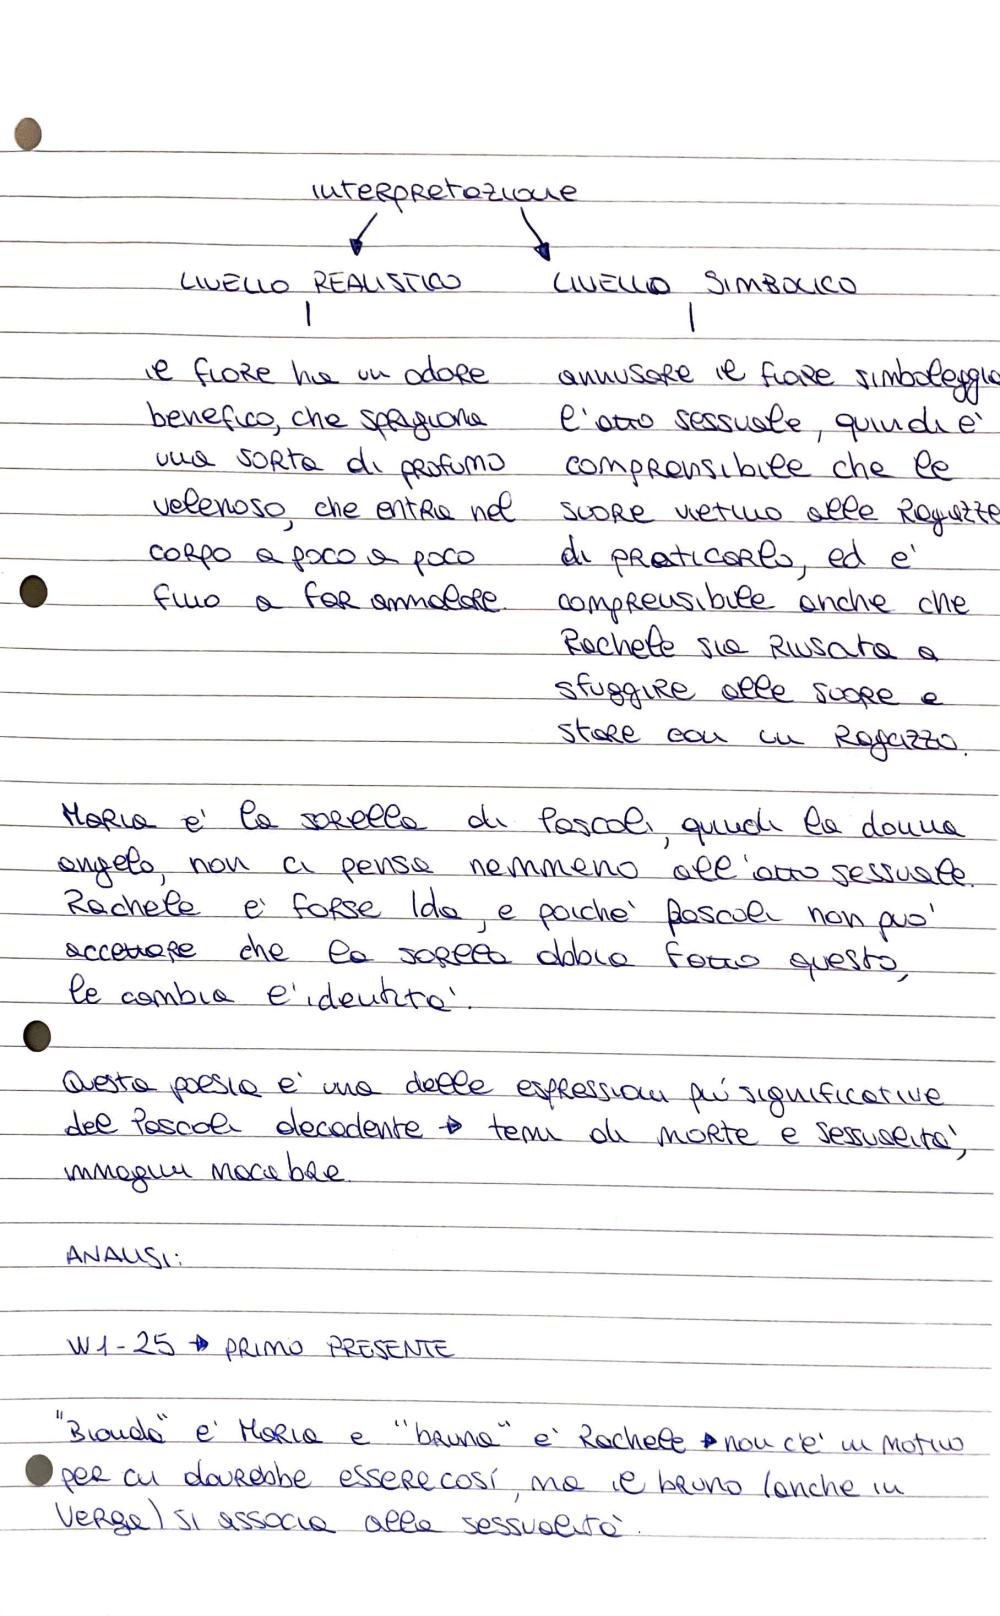 interpretazione
LIVELLO REALISTICO
il fiore ha un odore
benefico, che sprigiona
una sorta di profumo
velenoso, che entra nel
corpo a poco a poco
fino a far ammalare.
LIVELLO SIMBOLICO
annusare il fiore simboleggia
l'atto sessuale, quindi è
comprensibile che le
suore vietino alle ragazze
di praticarlo, ed è
comprensibile anche che
Rachele sia riusata a
sfuggire alle suore e
stare con un ragazzo.
Maria è la sorella di Pascoli, quindi la donna
angelo, non ci pensa nemmeno all'atto sessuale.
Rachele è forse Ida, e poiché Pascoli non può
accettare che la sorella abbia fatto questo,
le cambia l'identità.
Questa poesia è una delle espressioni più significative
del Pascoli decadente → temi di morte e sessualità,
immagini macabre.
ANALISI:
VV1-25 → PRIMO PRESENTE
"Bionda" è Maria e "bruna" è Rachele → non c'è un motivo
per cui dovrebbe essere così, ma il bruno (anche in
Verga) si associa alla sessualità.